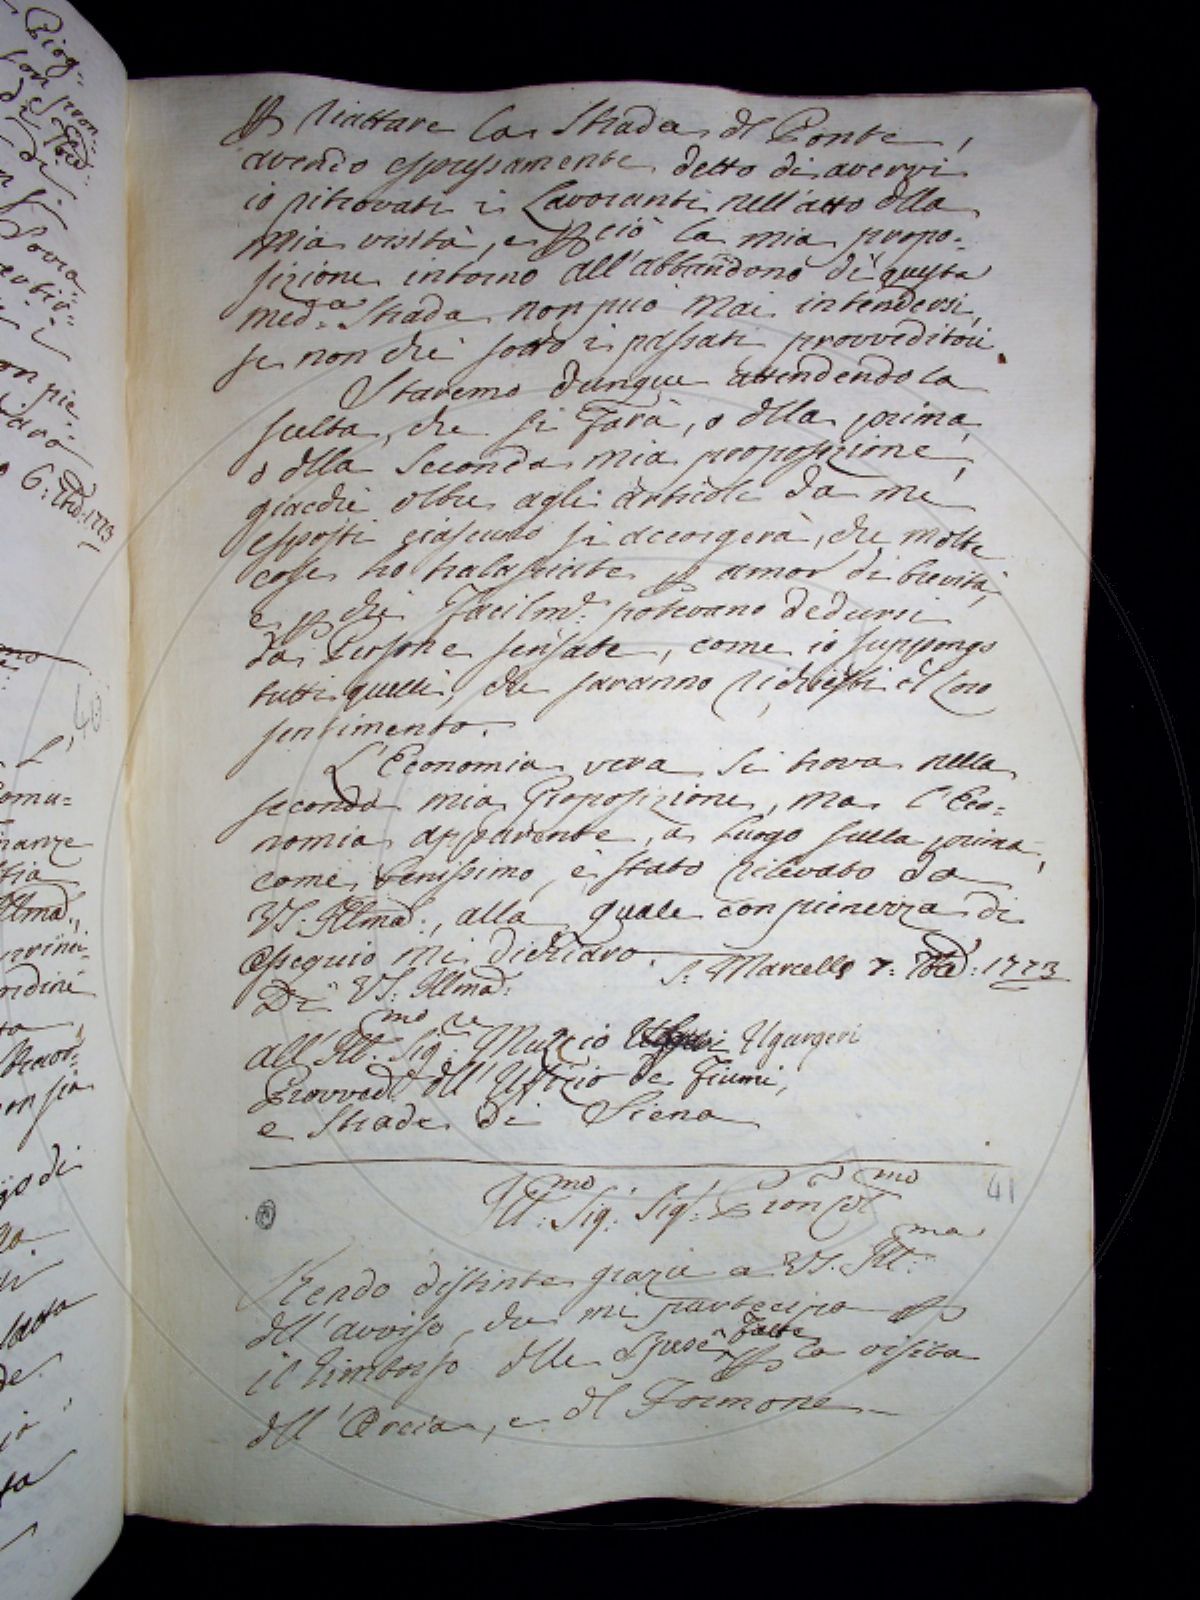 P riattare la Strada dl Ponte,
avendo espressamente detto di avervi
io ritrovati i Lavoranti nell'atto dlla
mia visita, e P ciò la mia propo-
sizione intorno all'abbandono di questa
med.a Strada non può mai intendersi,
se non che sotto i passati provveditori.
Staremo dunque attendendo la
scelta, che si farà, o dlla prima,
o dlla seconda mia proposizione,
giacchè oltre agli articoli da me
esposti ciascuno si accorgerà, che molte
cose ho tralasciate p amor di brevità,
e p che facilm.e potevano dedursi
da Persone sensate, come io suppongo
tutti quelli, che saranno richiesti dl loro
sentimento.
L'Economia vera si trova nella
seconda mia Proposizione, ma l'Eco-
nomia apparente, à luogo sulla prima,
come benissimo, è stato rilevato da
VS. Illma:, alla quale con pienezza di
ossequio mi dichiaro. S. Marcello 7: 1773
Di VS: Illma:
all' Ill.mo Sig.re Muzio Ugurgeri
Provved. dll' Uffizio de Fiumi,
e Strade di Siena
41
Ill.mo Sig: Sig: Pron Col.mo
Rendo distinte grazie a VS. Ill.ma
dll'avviso, che mi partecipa P
il rimborso dlle spese fatte P la visita
dll'Orcia, e dl Formone
40
6: 1773